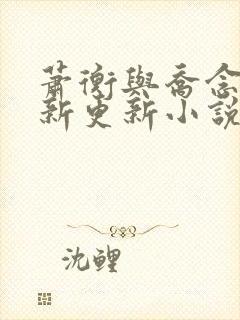 蕭衡與喬念
新更新小說
沈鯉